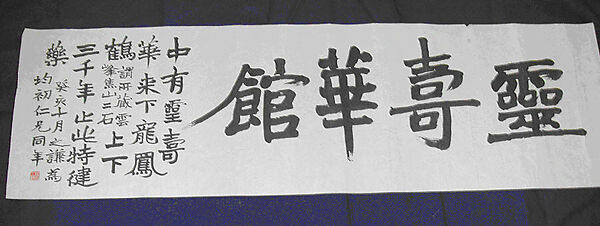 靈壽華館
中有靈壽
華來下龍鳳
鶴謂所藏雲
峯焦山二石上下
三千年止此特健
藥
癸亥十月之謙為
均初仁兄同年